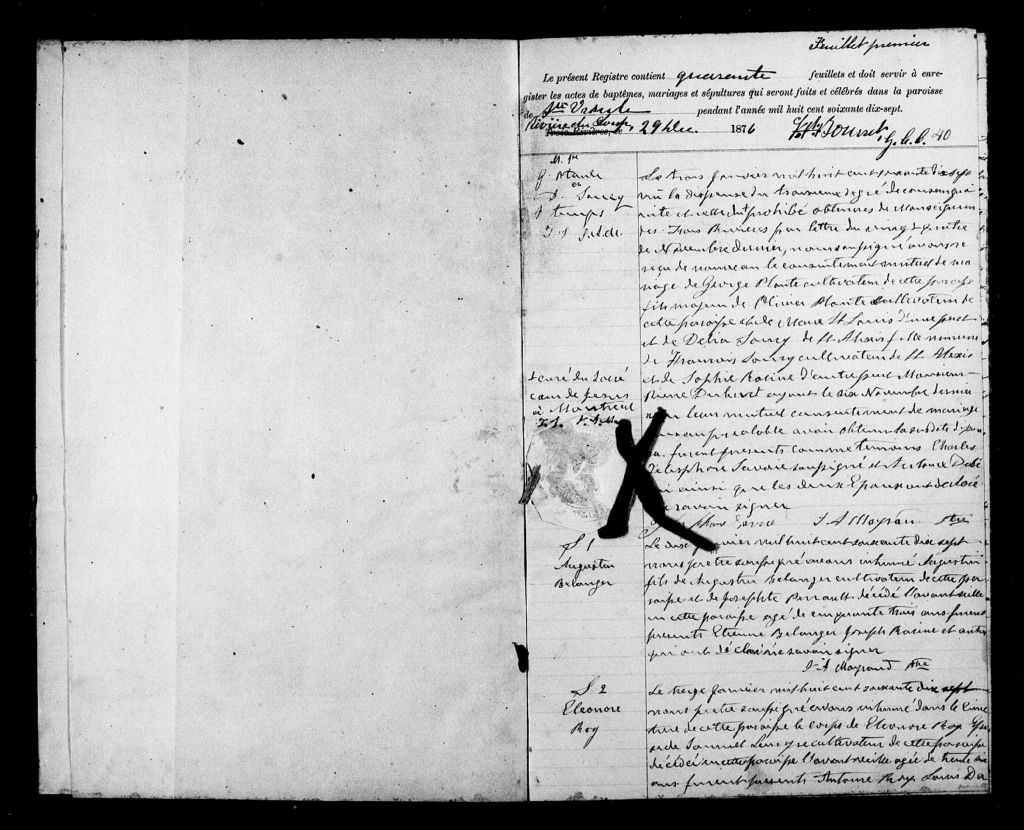 Feuillet premier
Le présent Registre contient quarante feuillets et doit servir à enre-
gister les actes de baptêmes, mariages et sépultures qui seront faits et célébrés dans la paroisse
de Ste Ursule pendant l'année mil huit cent soixante dix-sept.
Rivière du Loup, 29 Dec. 1876
M. 1er
G. Plante
Le trois janvier mil huit cent soixante dix sept
vu la dispense du troisieme degré de consangui
nité et celle du prohibé obtenues de Monseigneur
des Trois Rivières par lettre du vingt quatre
de Novembre dernier, nous soussigné avons re
reçu de nouveau le consentement mutuel de ma
riage de George Plante cultivateur de cette paroisse
fils majeur de Olivier Plante cultivateur de
cette paroisse et de Marie St Louis d'une part
et de Delia Saucy de St Alexis fille mineure
de Francois Saucy cultivateur de St Alexis
et de Sophie Racine d'autre part Monsieur
Pierre ayant le six Novembre dernier
leur mutuel consentement de mariage
sans au prealable avoir obtenu la susdite dispen
furent presents comme temoins Charles
Telesphore Savoie soussigné et
ainsi que les deux Epoux ont declaré
ne savoir signer
J A Mayrand Ptre
curé du Sacré
coeur de Jesus
à Montreal
S 1
Augustin
Belanger
Le onze janvier mil huit cent soixante dix sept
nous pretre soussigné avons inhumé Augustin
fils de Augustin Belanger cultivateur de cette par
oisse et de Josephte Perrault décédé l'avant veille
en cette paroisse agé de cinquante trois ans furent
presents Etienne Belanger Joseph Racine et autres
qui ont déclaré ne savoir signer
J A Mayrand Ptre
S 2
Eleonore
Roy
Le treize janvier mil huit cent soixante dix sept
nous pretre soussigné avons inhumé dans le cime
tiere de cette paroisse le corps de Eleonore Roy Epou
se de Samuel cultivateur de cette paroisse
décédée en cette paroisse l'avant veille agée de trente six
ans furent presents Antoine Roy Louis